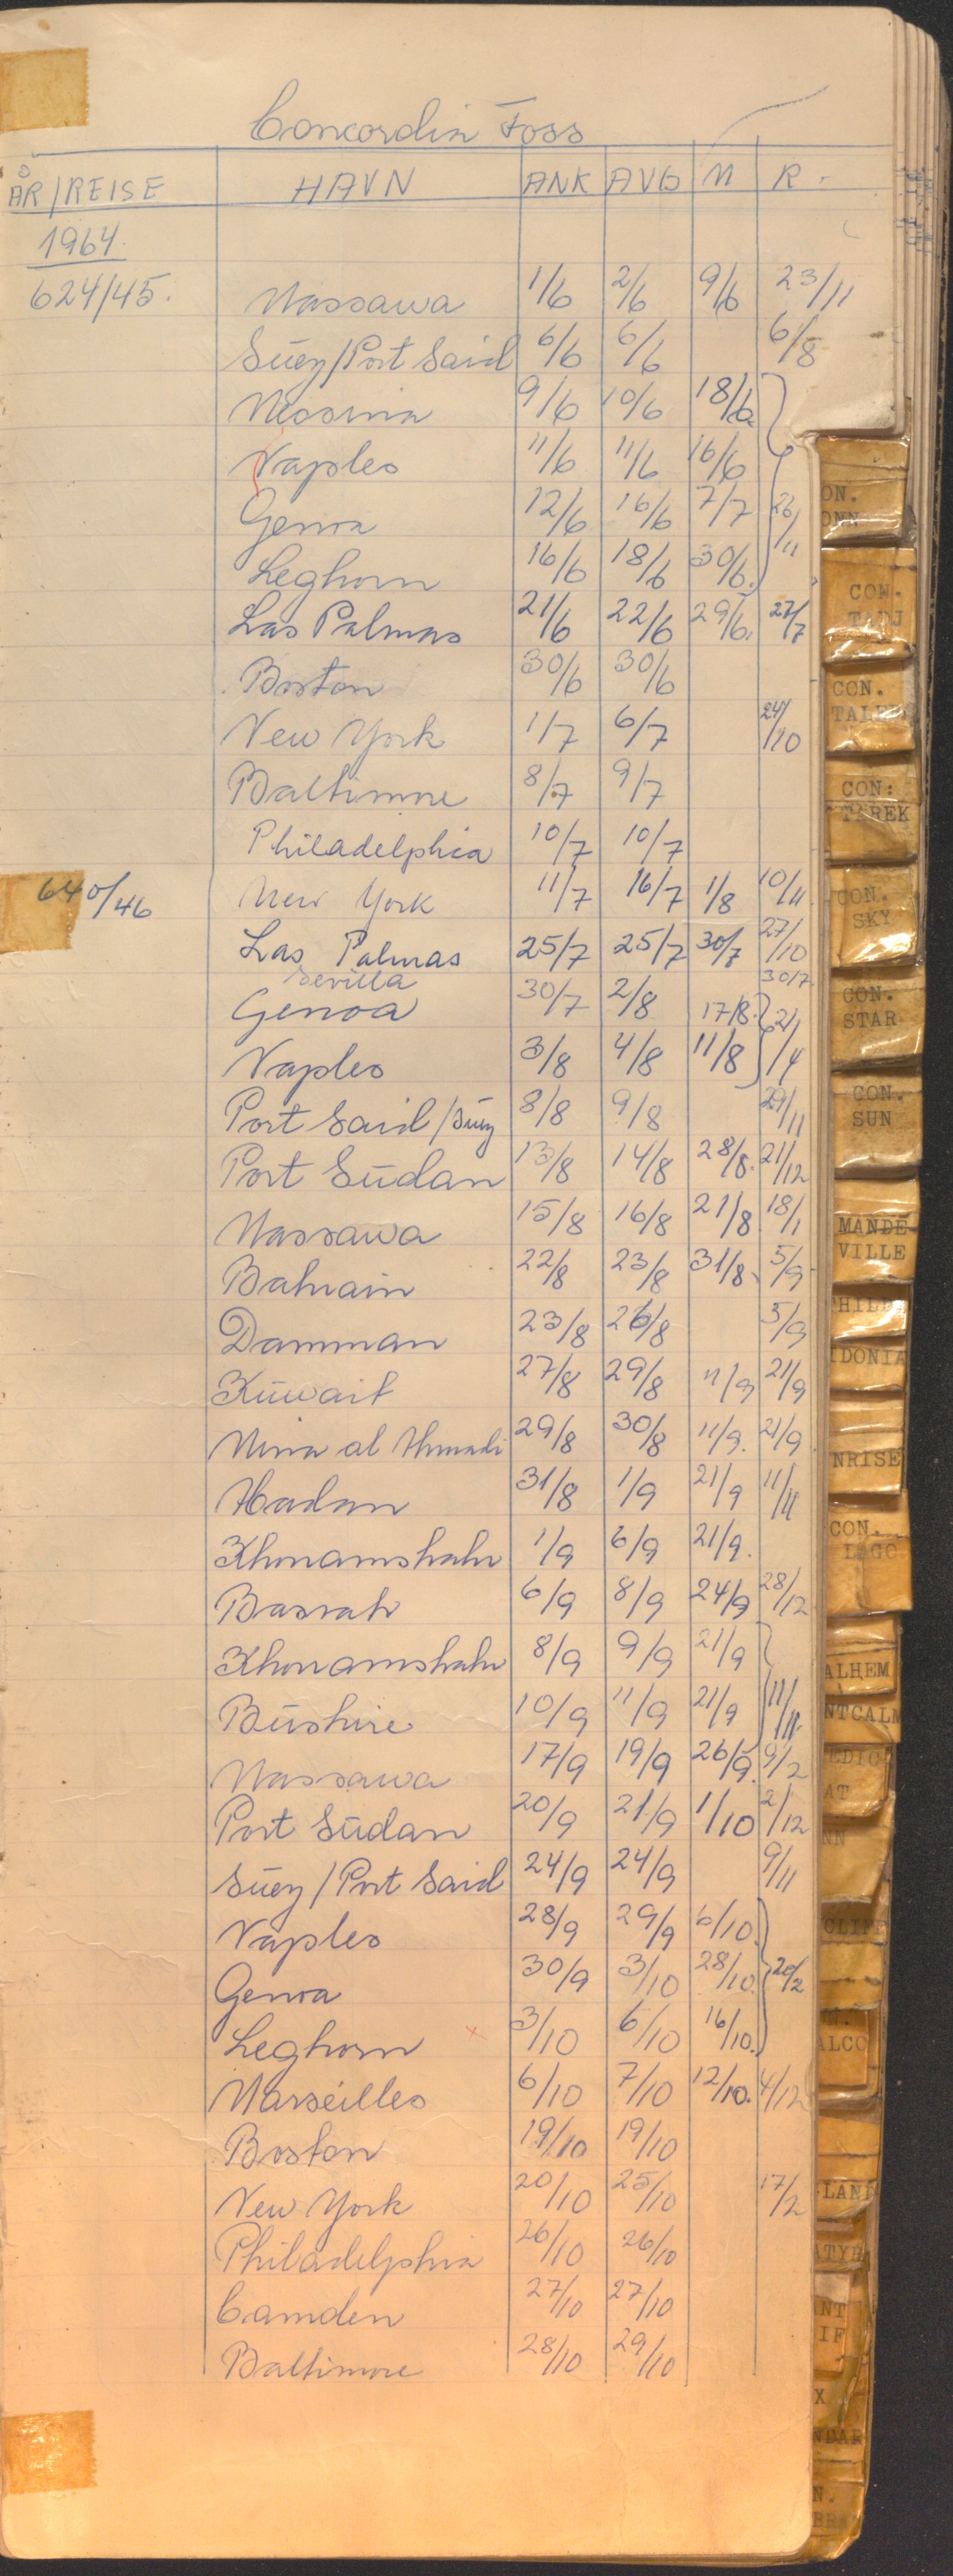 Concordia Foss
ÅR/REISE HAVN ANK AVG M R.
1964.
624/45. Massawa 1/6 2/6 9/6 23/11
Suez/Port Said 6/6 6/6 6/8
Messina 9/6 10/6 18/6
Naples 11/6 11/6 16/6
Genoa 12/6 16/6 7/7 26/11
Leghorn 16/6 18/6 30/6.
Las Palmas 21/6 22/6 29/6. 27/7
Boston 30/6 30/6
New York 1/7 6/7 24/10
Baltimore 8/7 9/7
Philadelphia 10/7 10/7
640/46 New York 11/7 16/7 1/8 10/11
Las Palmas 25/7 25/7 30/7 27/10
Sevilla 30/7
Genoa 30/7 2/8 17/8.
Naples 3/8 4/8 11/8
Port Said/Suez 8/8 9/8 29/11
Port Sūdan 13/8 14/8 28/8. 21/12
Massawa 15/8 16/8 21/8 18/1
Bahrain 22/8 23/8 31/8 5/9
Damman 23/8 26/8 5/9
Kūwait 27/8 29/8 11/9 21/9
Mina al Ahmadi 29/8 30/8 11/9. 21/9
Abadan 31/8 1/9 21/9 11/11
Khoramshahr 1/9 6/9 21/9.
Basrah 6/9 8/9 24/9 28/12
Khoramshahr 8/9 9/9 21/9
Būshire 10/9 11/9 21/9 11/11
Massawa 17/9 19/9 26/9. 9/2
Port Sūdan 20/9 21/9 1/10 2/12
Suez/Port Said 24/9 24/9 9/11
Naples 28/9 29/9 6/10.
Genoa 30/9 3/10 28/10. 20/2
Leghorn 3/10 6/10 16/10.
Marseilles 6/10 7/10 12/10. 4/12
Boston 19/10 19/10
New York 20/10 25/10 17/2
Philadelphia 26/10 26/10
Camden 27/10 27/10
Baltimore 28/10 29/10
ON.
ONN
CON.
TADJ
CON.
TALEB
CON:
TAREK
CON.
SKY
CON.
STAR
CON.
SUN
MANDE-
VILLE
HILL
IDONIA
NRISE
CON.
LAGO
ALHEM
NTCALM
EDIC
AT
NN
CLIFF
N.
ALCO
LAND
ATYR
ANT
IF
X
NDAR
N.